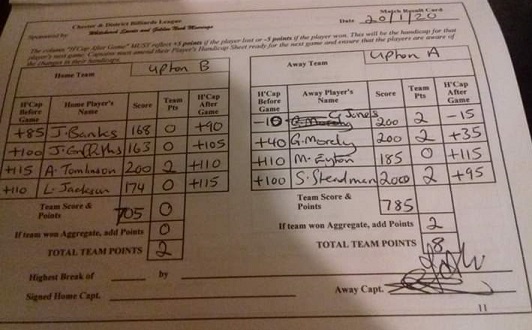 Match Result Card
Chester & District Billiards League
Date 20/1/20
Sponsored by
The column "H'Cap After Game" MUST reflect +5 points if the player lost or -5 points if the player won. This will be the handicap for that
player's next game. Captains must amend their Player's Handicap Sheet ready for the next game and ensure that the players are aware of
the changes in their handicaps.
Home Team Upton B
Away Team Upton A
H'Cap Before Game Home Player's Name Score Team Pts H'Cap After Game
+85 J. Banks 168 0 +90
+100 J. Griffiths 163 0 +105
+115 A. Tomlinson 200 2 +110
+110 L. Jackson 174 0 +115
Team Score & Points 705 0
If team won Aggregate, add Points 0
TOTAL TEAM POINTS 2
H'Cap Before Game Away Player's Name Score Team Pts H'Cap After Game
-10 G Jones 200 2 -15
+40 G. Mordy 200 2 +35
+110 M. Eyton 185 0 +115
+100 S. 200 2 +95
Team Score & Points 785
If team won Aggregate, add Points 2
TOTAL TEAM POINTS 8
Highest Break of by
Signed Home Capt.
Away Capt.
11